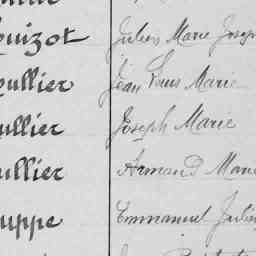 uizot Julien Marie Joseph
ullier Jean Louis Marie
ullier Joseph Marie
ullier Armand Marie
uppe Emmanuel Julien